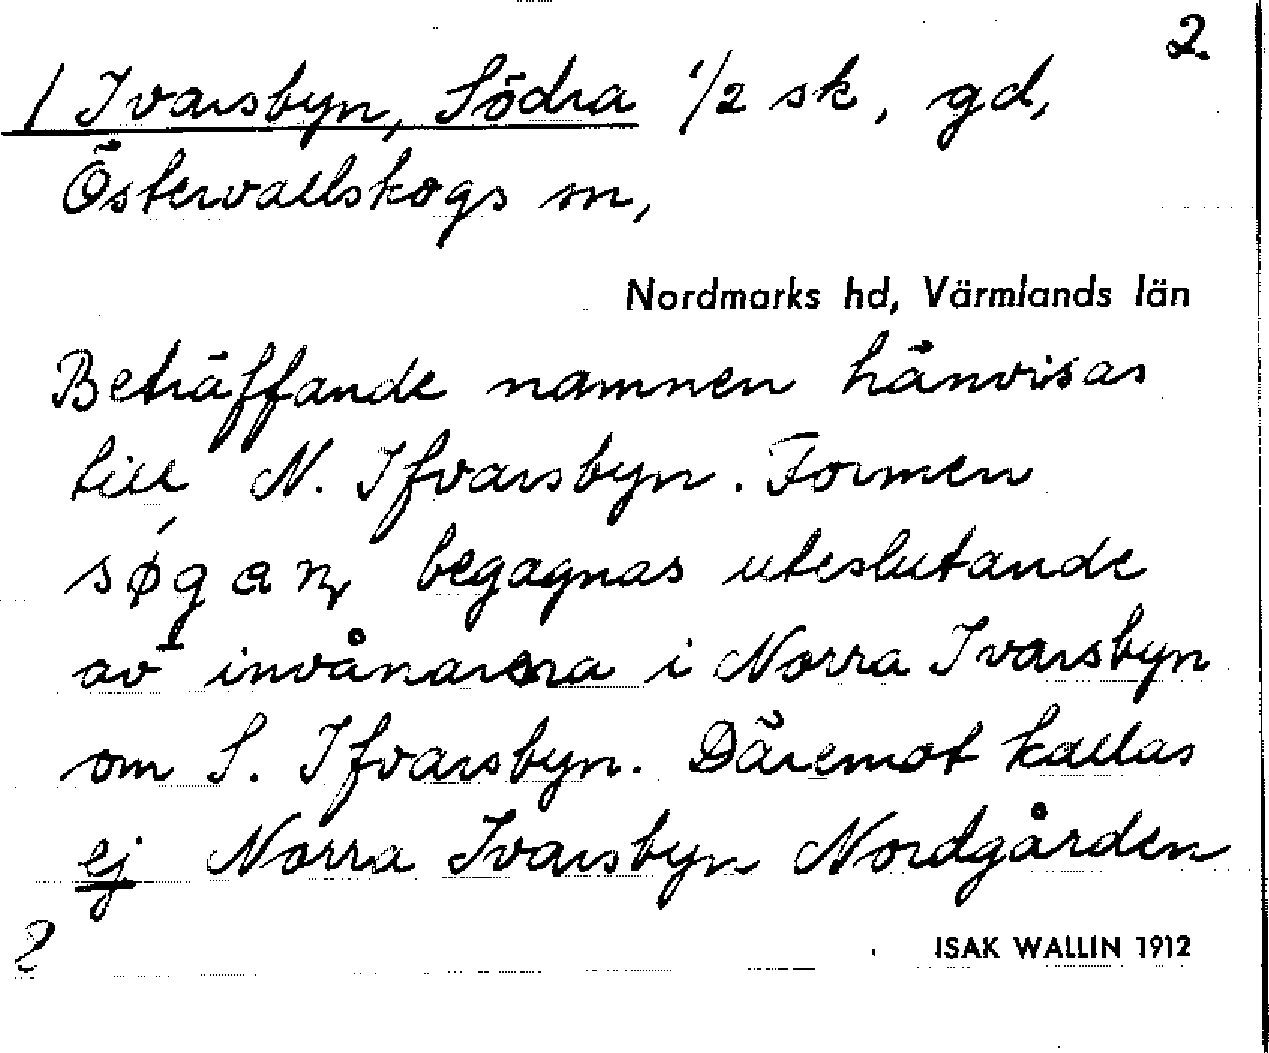 2.
/ Ivarsbyn, Södra 1/2 sk, gd,
Östervallskogs sn,
Nordmarks hd, Värmlands län
Beträffande namnen hänvisas
till N. Ifvarsbyn. Formen
begagnas uteslutande
av invånarna i Norra Ivarsbyn
om S. Ifvarsbyn. Däremot kallas
ej Norra Ivarsbyn Nordgården
ISAK WALLIN 1912